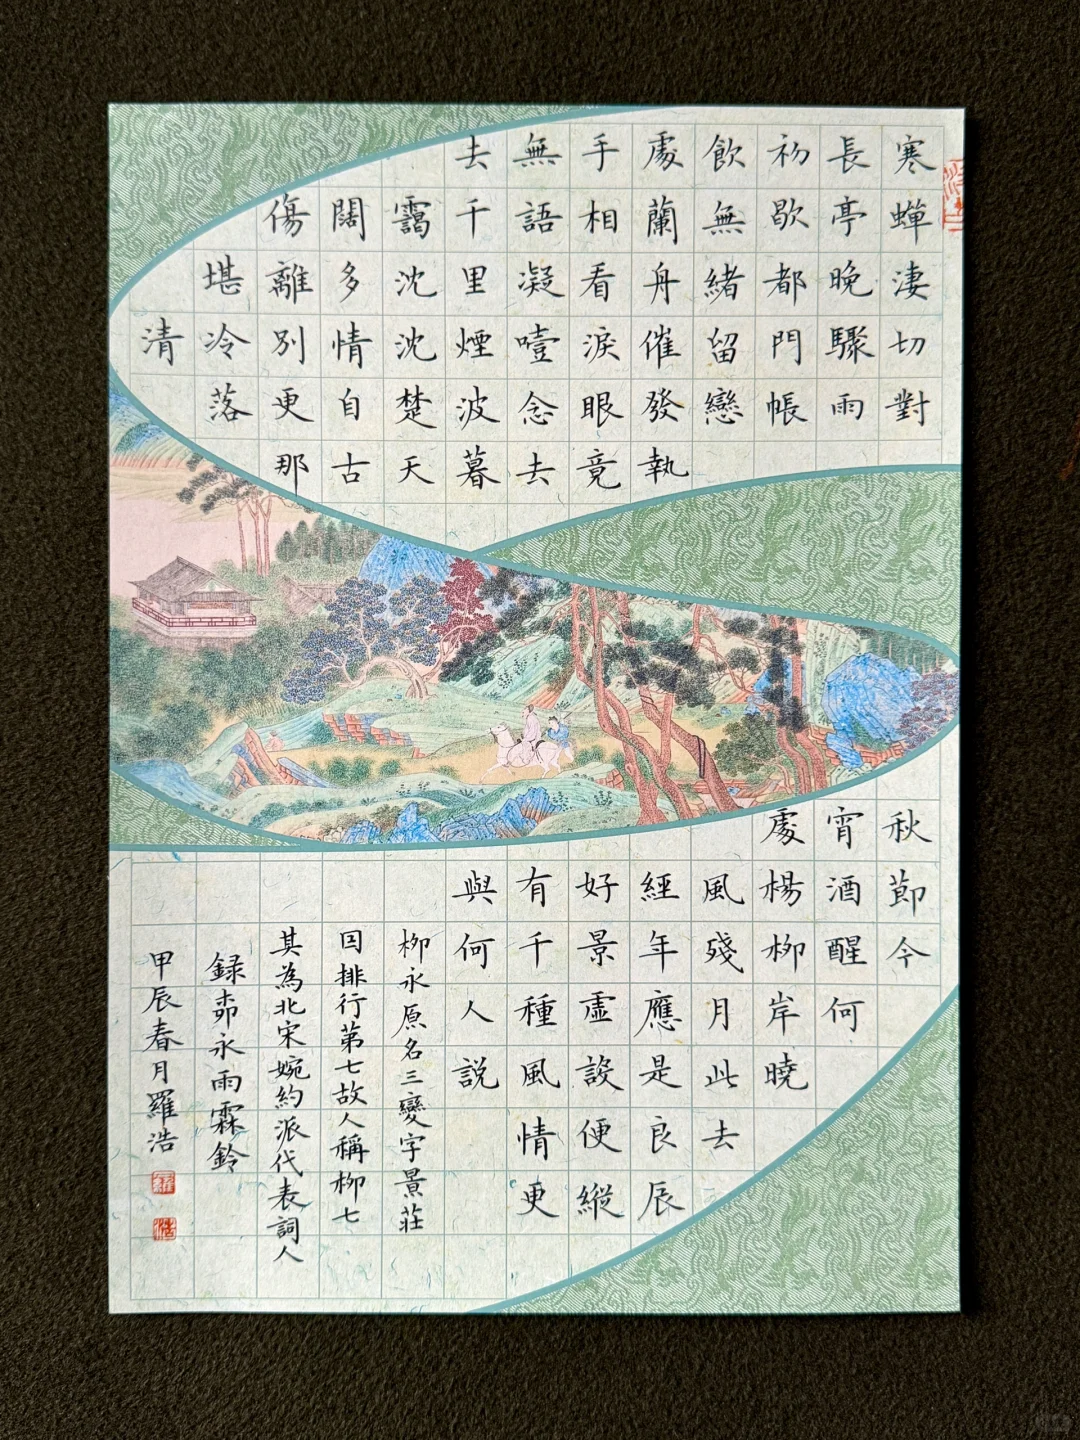 寒蟬淒切對
長亭晚驟雨
初歇都門帳
飲無緒留戀
處蘭舟催發執
手相看淚眼竟
無語凝噎念去
去千里煙波暮
靄沈沈楚天
闊多情自古
傷離別更那
堪冷落
清
秋節今
宵酒醒何
處楊柳岸曉
風殘月此去
經年應是良辰
好景虛設便縱
有千種風情更
與何人説
柳永原名三變字景莊
因排行第七故人稱柳七
其為北宋婉約派代表詞人
録柳永雨霖鈴
甲辰春月羅浩
羅
浩